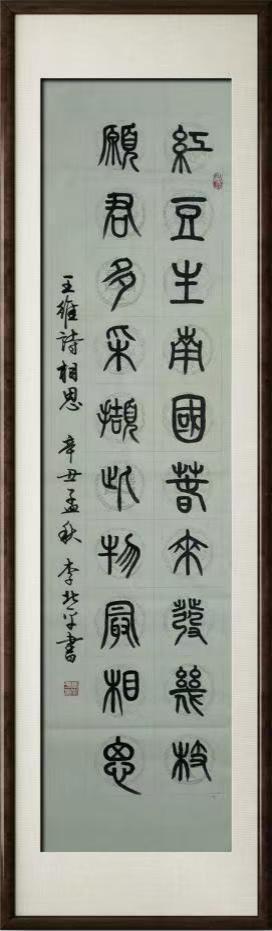 紅豆生南國春來發幾枝
願君多采擷此物最相思
王維詩相思 辛丑孟秋 李北平書